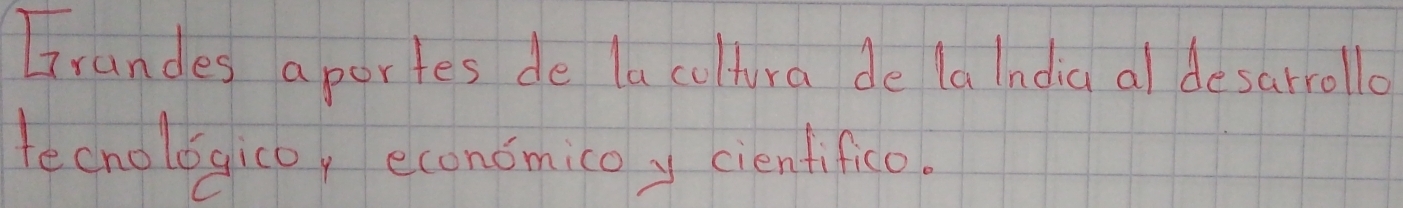 Grandes aportes de la cultura de la India al desarrollo
tecnológico, económico y cientifico.